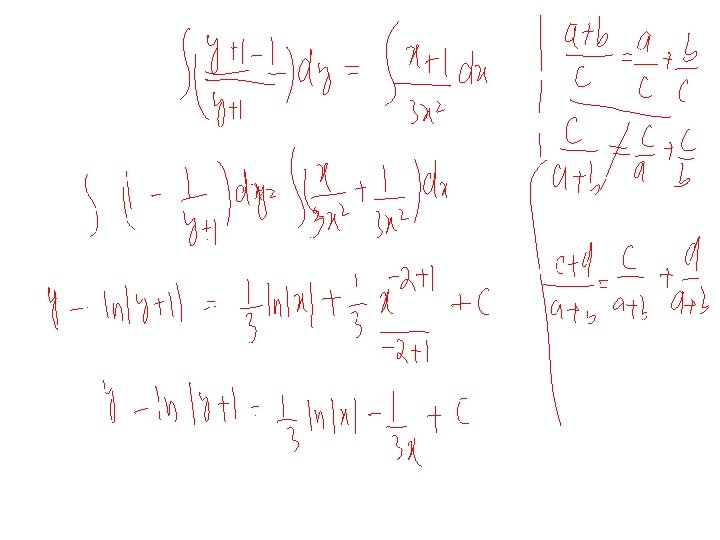 ∫((y+1-1)/(y+1))dy = ∫(x+1)/(3x²) dx
∫(1 - 1/(y+1))dy = ∫(x/(3x²) + 1/(3x²))dx
y - ln|y+1| = 1/3 ln|x| + 1/3 x^(-2+1)/(-2+1) + C
y - ln|y+1 = 1/3 ln|x| - 1/(3x) + C
(a+b)/c = a/c + b/c
c/(a+b) ≠ c/a + c/b
(c+d)/(a+b) = c/(a+b) + d/(a+b)